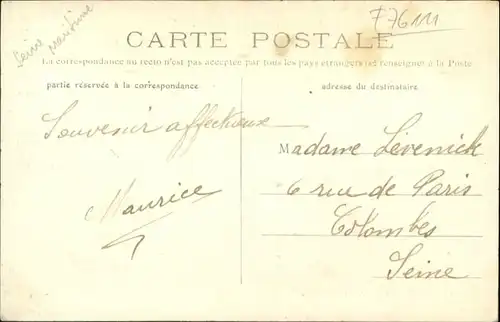 Seine
maritime
F76111
CARTE POSTALE
La correspondance au recto n'est pas acceptée par tous les pays étrangers (se renseigner) à la Poste
partie réservée à la correspondance
adresse du destinataire
Souvenir affectueux
Maurice
Madame Lévenick
6 rue de Paris
Colombes
Seine